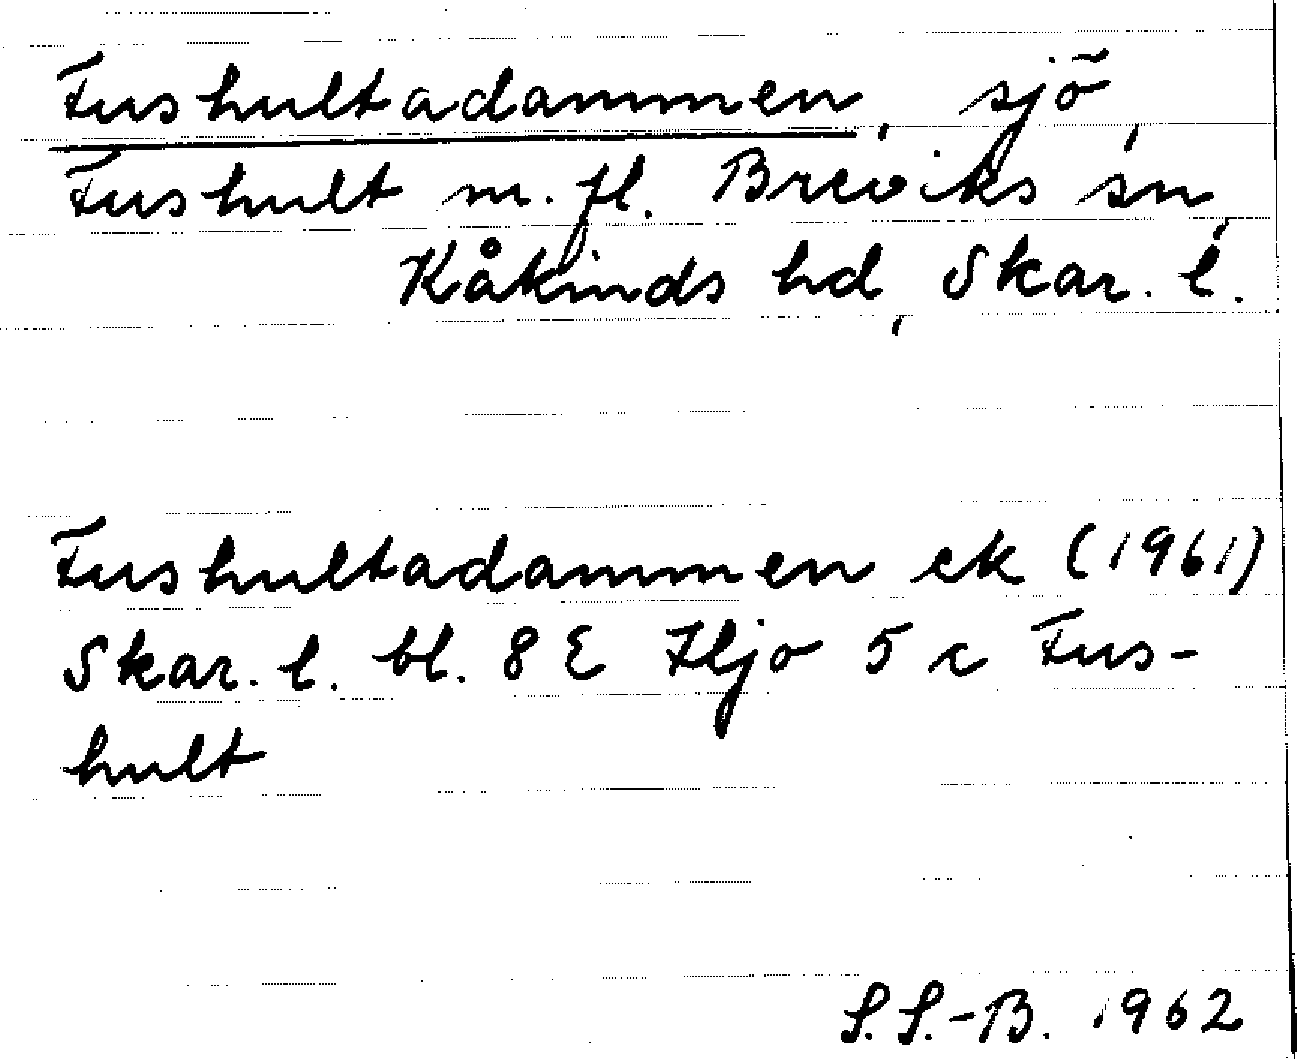 Fushultadammen, sjö,
Fushult m. fl. Breviks sn,
Kåkinds hd, Skar. l.
Fushultadammen ek (1961)
Skar. l. bl. 8 E Hjo 5 c Fus-
hult
S.S.-B. 1962